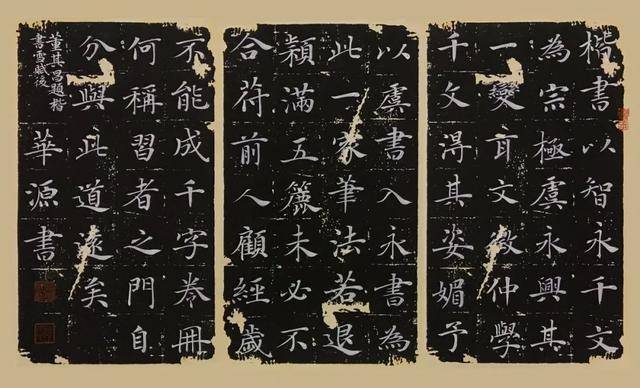 楷書以智永千文
為宗極虞永興其
一變耳文徵仲學
千文得其姿媚予
以虞書入永書為
此一家筆法若退
穎滿五簏未必不
合苻前人顧經歲
不能成千字卷冊
何稱習者之門自
分與此道遠矣
董其昌題楷
書雪賦後
華源書